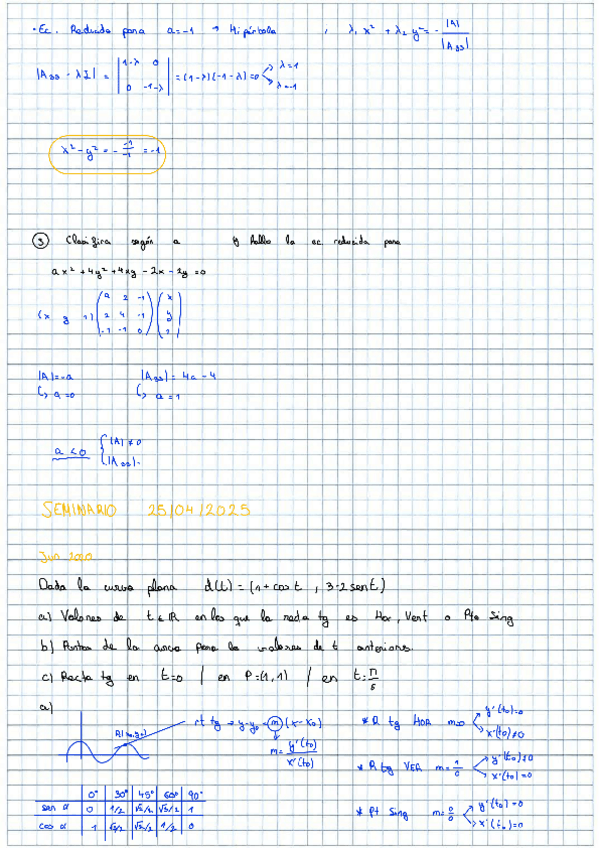 · Ec. Reducida para a=-1 → Hipérbola , λ₁ x² + λ₂ y² = - |A| / |A₃₃|
|A₃₃ - λI| = | 1-λ 0 ; 0 -1-λ | = (1-λ)(-1-λ)=0 λ=1 λ=-1
x² - y² = - -1/-1 = -1
③ Clasifica según a y halla la ec reducida para
ax² + 4y² + 4xy - 2x - 2y = 0
(x y 1) (a 2 -1 ; 2 4 -1 ; -1 -1 0) (x ; y ; 1)
|A| = -a |A₃₃| = 4a - 4
↳ a=0 ↳ a=1
a<0 { |A| ≠ 0
|A₃₃| -
SEMINARIO 25/04/2025
Jun
Dada la curva plana d(t) = (1+cos t , 3-2 sen t)
a) Valores de t ∈ IR en los que la recta tg es Hor, Vert o Pto Sing
b) Puntos de la curva para los valores de t anteriores.
c) Recta tg en t=0 / en P=(1,1) / en
a)
rt tg → y-y₀ = m (x-x₀)
m = y'(t₀) / x'(t₀)
* R tg HOR m=0 y'(t₀)=0 x'(t₀)≠0
* R tg VER m= 1/0 y'(t₀)≠0 x'(t₀)=0
* Pt Sing m= 0/0 y'(t₀)=0 x'(t₀)=0
0° 30° 45° 60° 90°
sen α 0 1/2 √2/2 √3/2 1
cos α 1 √3/2 √2/2 1/2 0